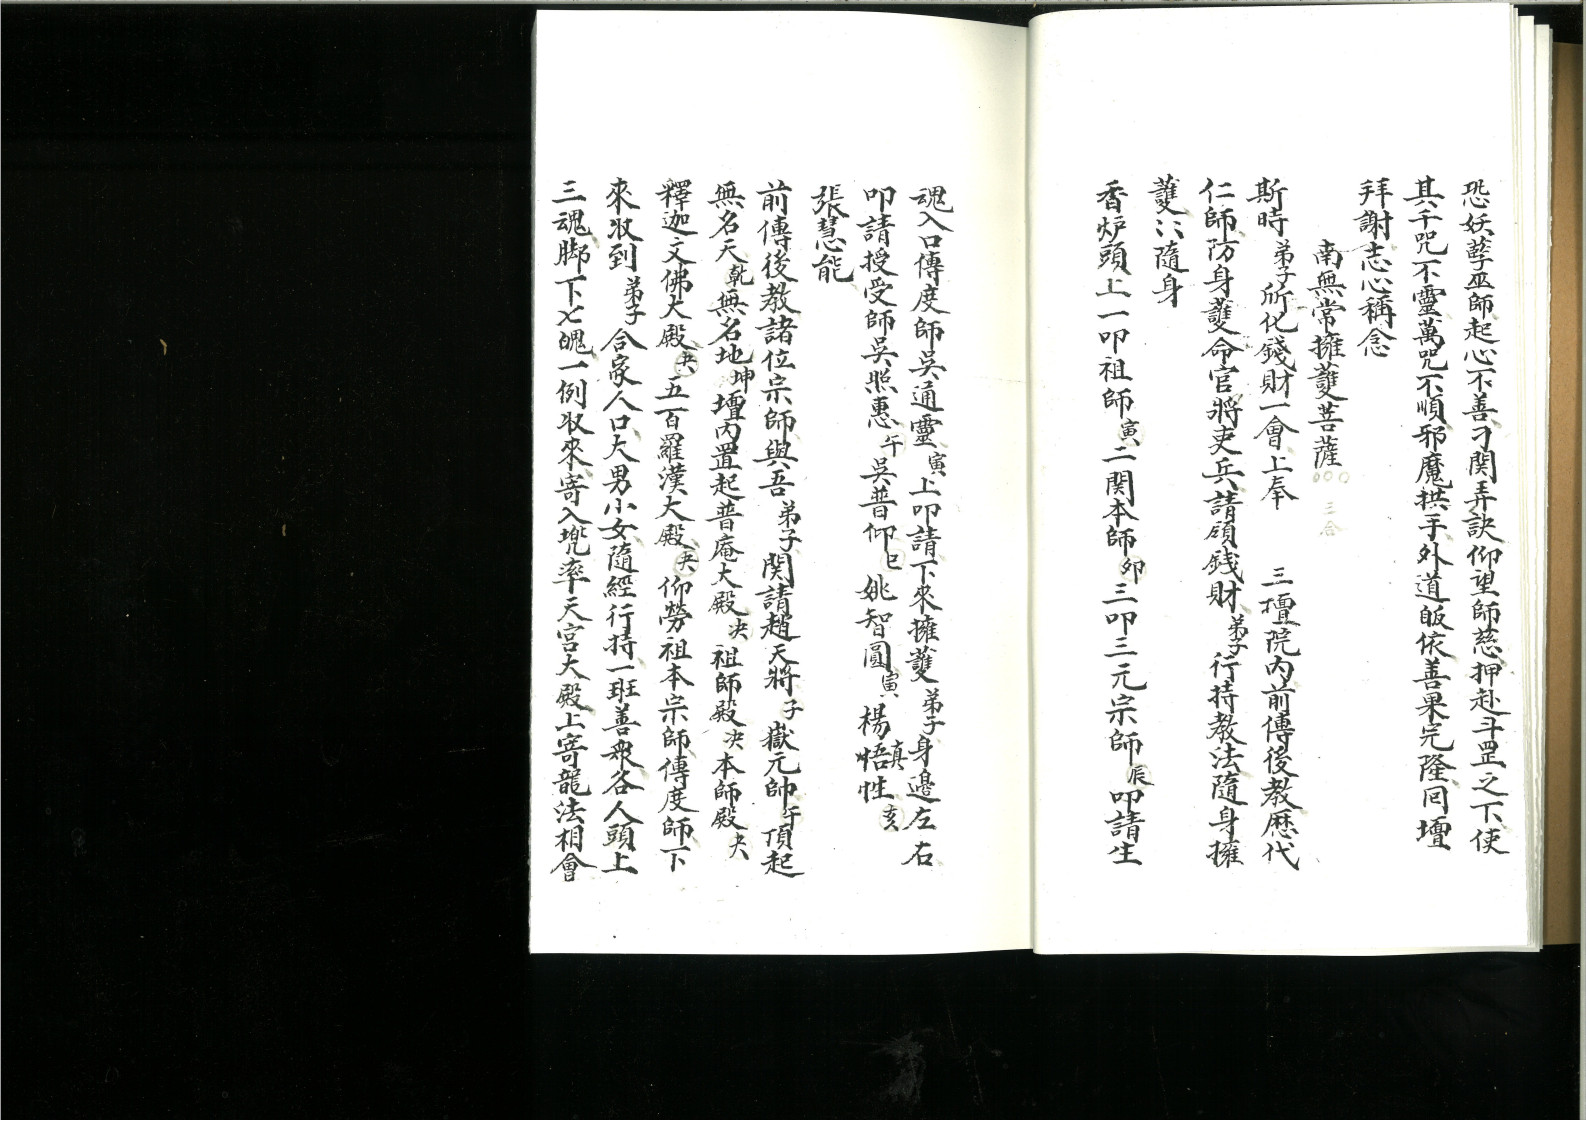 恐妖孽巫師起心不善刁関弄訣仰望師慈押赴斗罡之下使
其千咒不靈萬咒不順邪魔拱手外道皈依善果完隆同壇
拜謝志心稱念
南無常擁護菩薩
斯時弟子所化錢財一會上奉 三壇院內前傳後教歷代
仁師防身護命官將吏兵請領錢財弟子行持教法隨身擁
護〻隨身
香炉頭上一叩祖師寅二関本師卯三叩三元宗師辰叩請生
魂入口傳度師吳通靈寅上叩請下來擁護弟子身邊左右
叩請授受師吳照惠午吳普仰巳姚智圓寅楊悟真性亥
張慧能
前傳後教諸位宗師與吾弟子関請趙天將子嶽元帥午頂起
無名天乾無名地坤壇內置起普庵大殿决祖師殿决本師殿决
釋迦文佛大殿决五百羅漢大殿决仰勞祖本宗師傳度師下
來收到弟子合家人口大男小女隨經行持一班善衆各人頭上
三魂脚下七魄一例收來寄入兠率天宮大殿上寄龍法相會